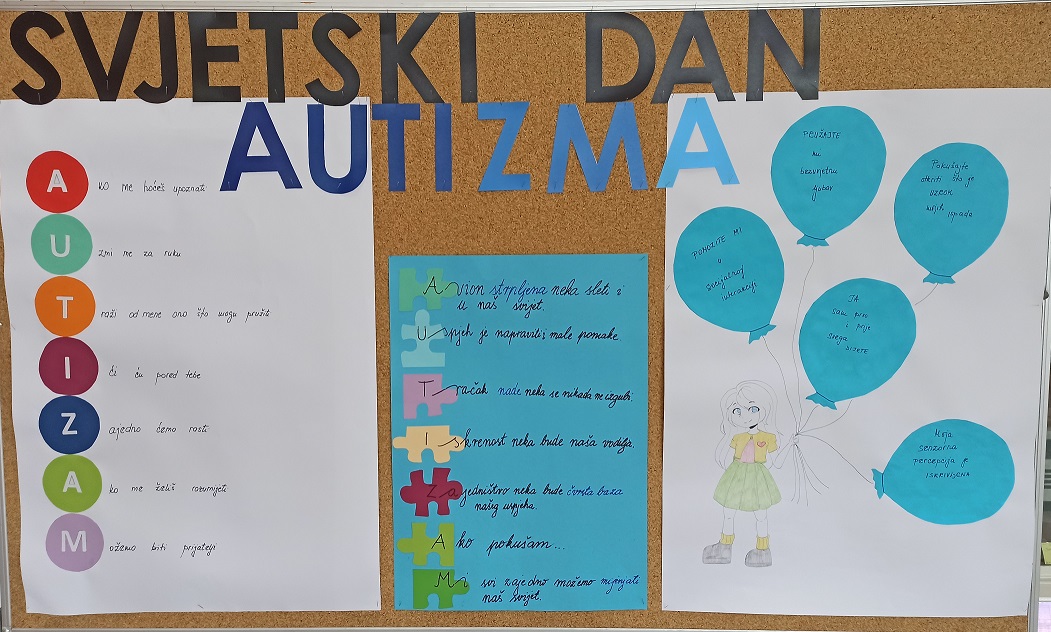 SVJETSKI DAN
AUTIZMA
A ko me hoćeš upoznati
U zmi me za ruku
T raži od mene ono što mogu pružiti
I ći ću pored tebe
Z ajedno ćemo rasti
A ko me želiš razumjeti
M ožemo biti prijatelji
Avion strpljena neka sleti i
u naš svijet.
Uspjeh je napraviti i male pomake.
Tračak nade neka se nikada ne izgubi.
Iskrenost neka bude naša vodilja.
Zajedništvo neka bude čvrsta baza
našig uspjeha.
Ako pokušam...
Mi svi zajedno možemo mijenjati
naš svijet.
PRUŽAJTE
mi
bezuvjetnu
ljubav
Pokušajte
otkriti što je
UZROK
mojih ispada
POMOZITE MI
u
socijalnoj
interakciji
JA
sam prvo
i prije
svega
DIJETE
Moja
senzorna
percepcija je
ISKRIVLJENA